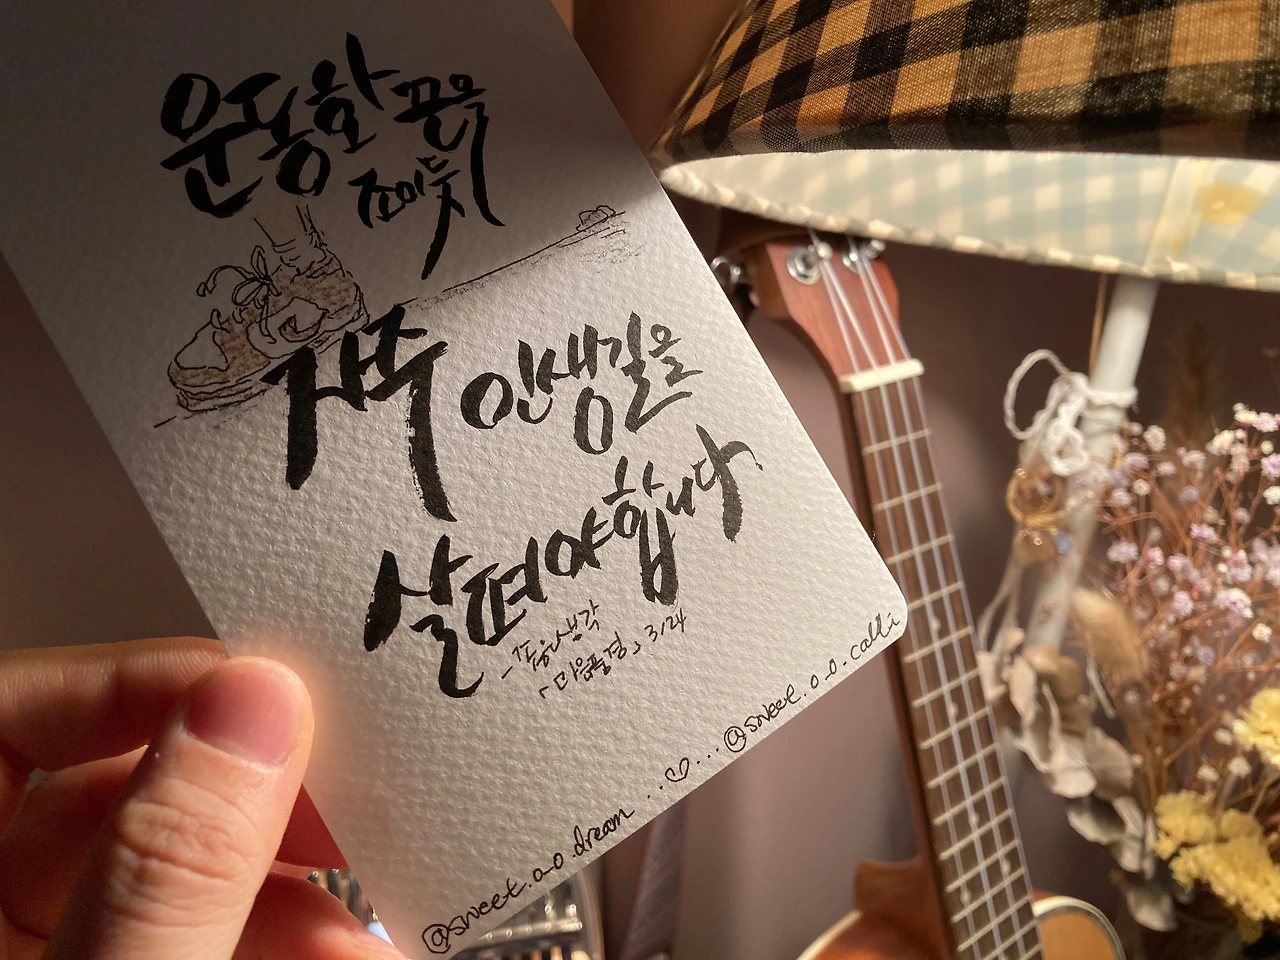 운동화 끈을
조이듯
자주 인생길을
살펴야 합니다
「마음풍경」 3/24
@sweet.o_o.dream ..♡... @sweet.o_o.calli